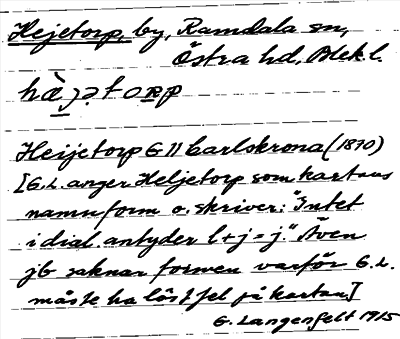 Hejetorp, by, Ramdala sn,
Östra hd, Blek.l.
hæ̀jətorp
Heijetorp G11 Carlskrona (1870)
[G.L. anger Heljetorp som kartans
namnform o. skriver: "Intet
i dial. antyder l+j = j." Även
jb saknar formen varför G.L.
måste ha läst fel på kartan.]
G. Langenfelt 1915